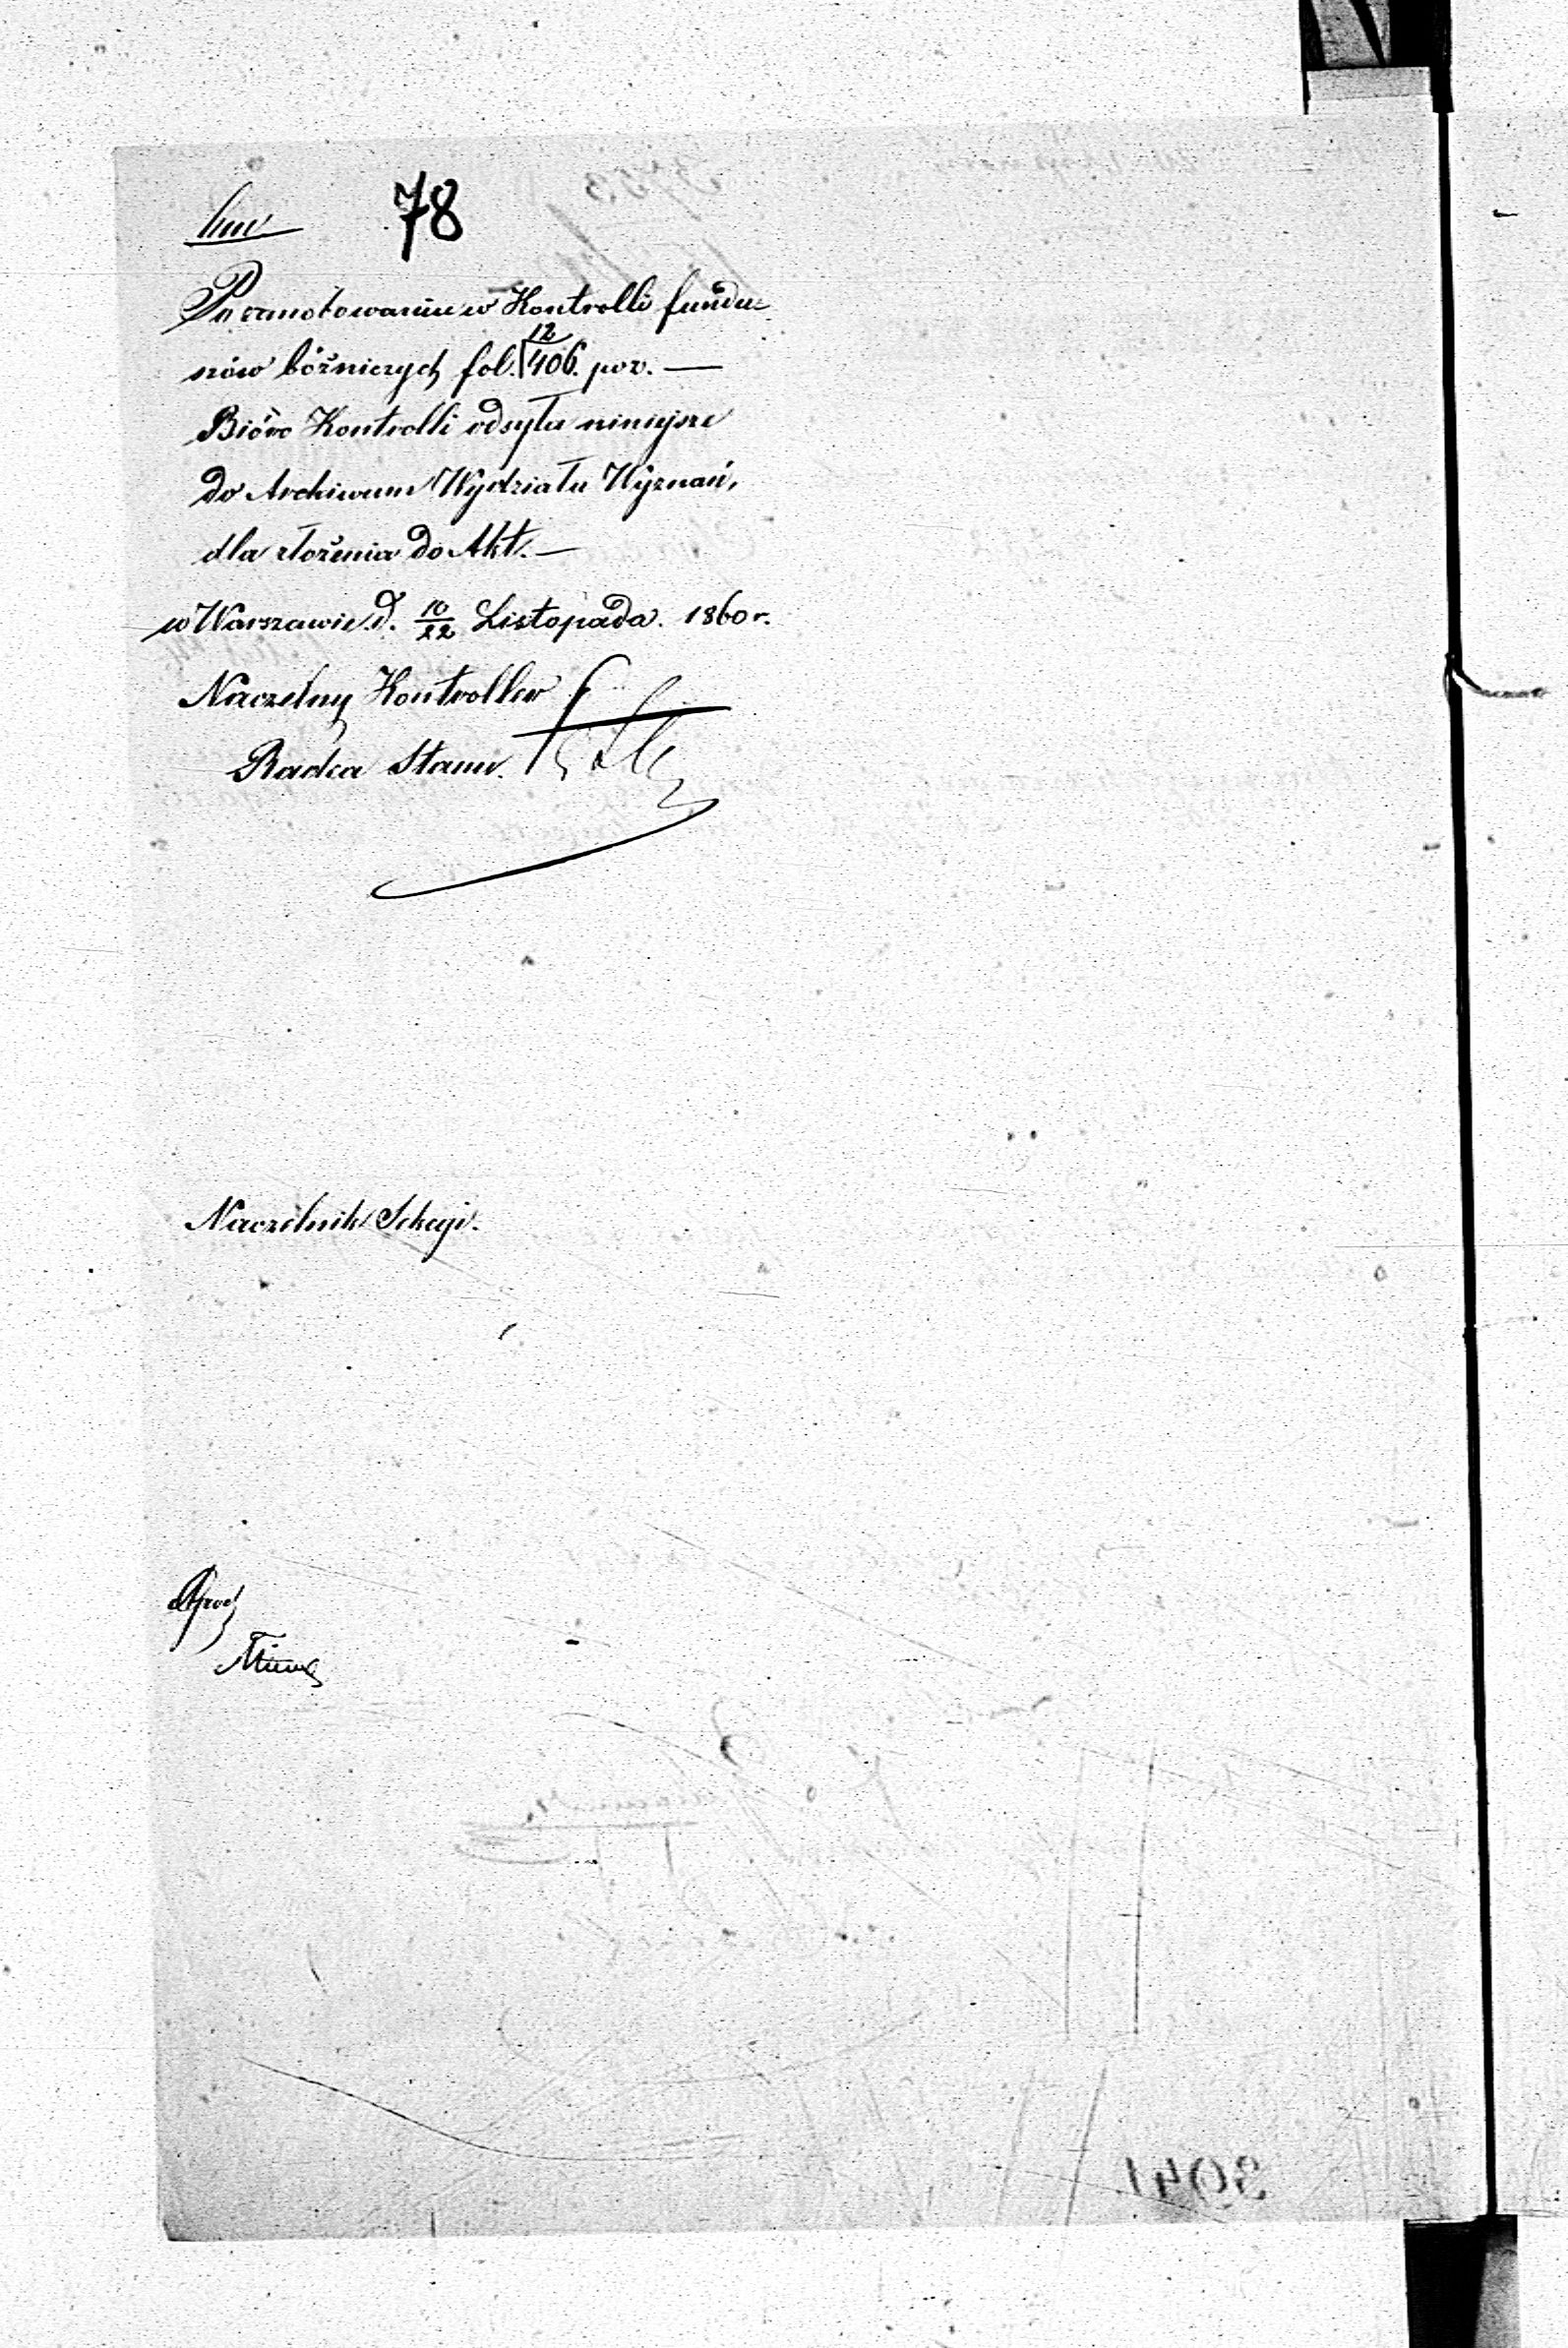 78
Po zanotowaniu w Kontrolli fundu=
szów bóżniczych fol. 12/406. poz. —
Bióro Kontrolli odsyła niniejsze
do Archiwum Wydziału Wyznań,
dla złożenia do Akt. —
w Warszawie d. 10/22 Listopada. 1860 r.
Naczelny Kontroller
Radca Stanu.
Naczelnik Sekcyi.
3041